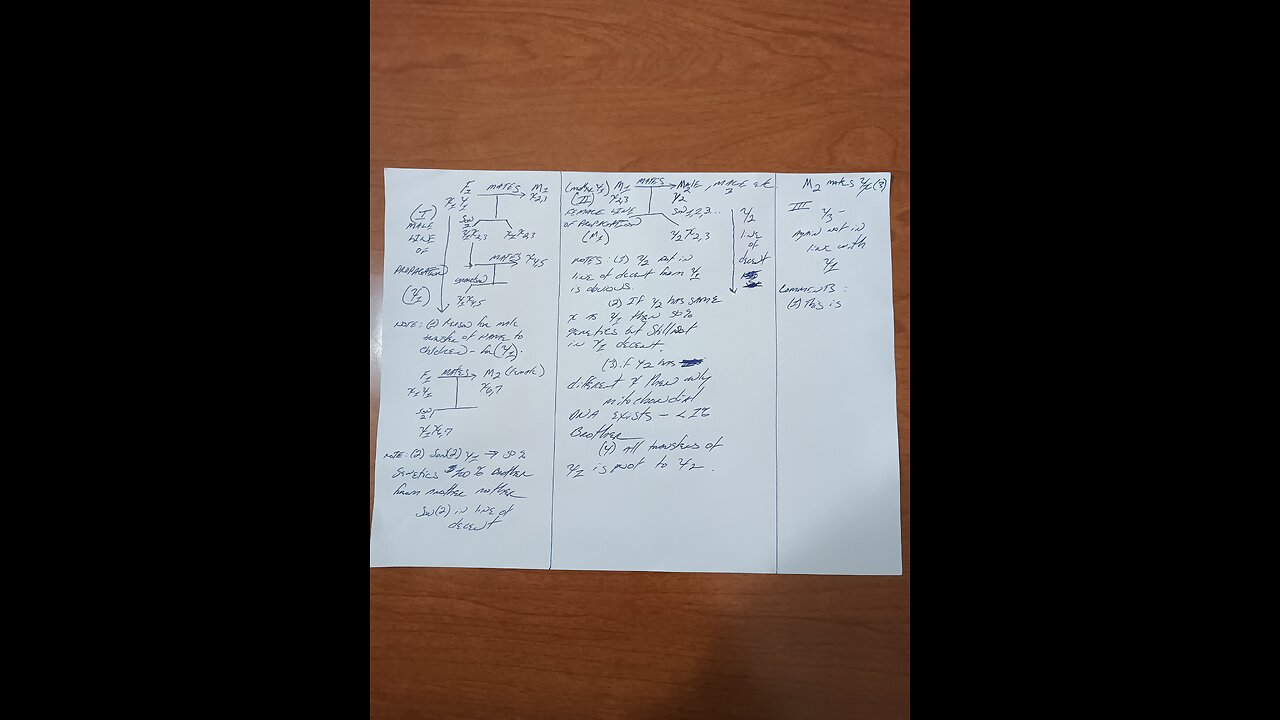 F1 MATES M1
X1 Y1 X2,3
(I)
MALE
LINE
OF
PROPAGATION
(Y1)
SON
Y1X2,3 X1X2,3
MATES X4,5
grandson
Y1X4,5
NOTE: (1) REASON for male
transfer of NAME to
children - for (Y1).
F1 MATES M2 (Female)
X1Y1 X6,7
SON
2
Y1X6,7
NOTE: (2) Son(2) Y1 → 50%
Genetics 100% Brother
from another mother
Son(2) in line of
decent
(mother Y1) M1 MATES MALE
2
(II) X2,3 Y2
FEMALE LINE
OF PROPAGATION
(M1)
SON 1,2,3...
Y2X2,3
Y2
line
of
decent
NOTES: (1) Y2 not in
line of decent from Y1
is obvious.
(2) If Y2 has same
X as Y1 then 50%
genetics but still not
in Y1 decent.
(3) if Y2 has
different X then only
mitochondrial
DNA exists - <1%
Brother
(4) All transfers of
Y1 is not to Y2.
M2 mates
III
Y3 -
Again not in
line with
Y1
COMMENTS:
(1) This is